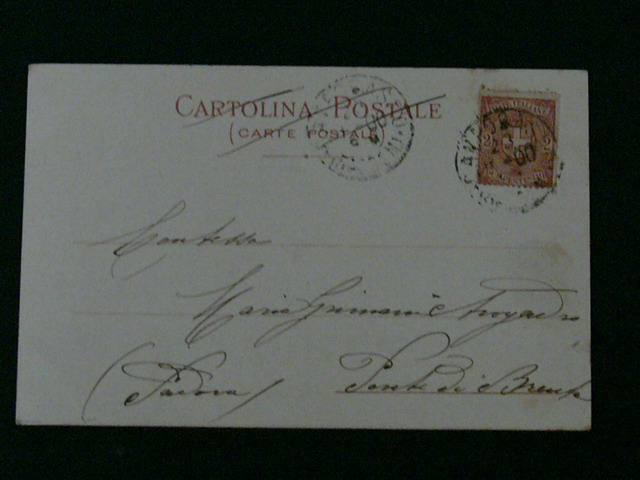 CARTOLINA POSTALE
(CARTE POSTALE)
2 2
Contessa
Maria Grimani Avogadro
(Padova) Ponte di Brenta